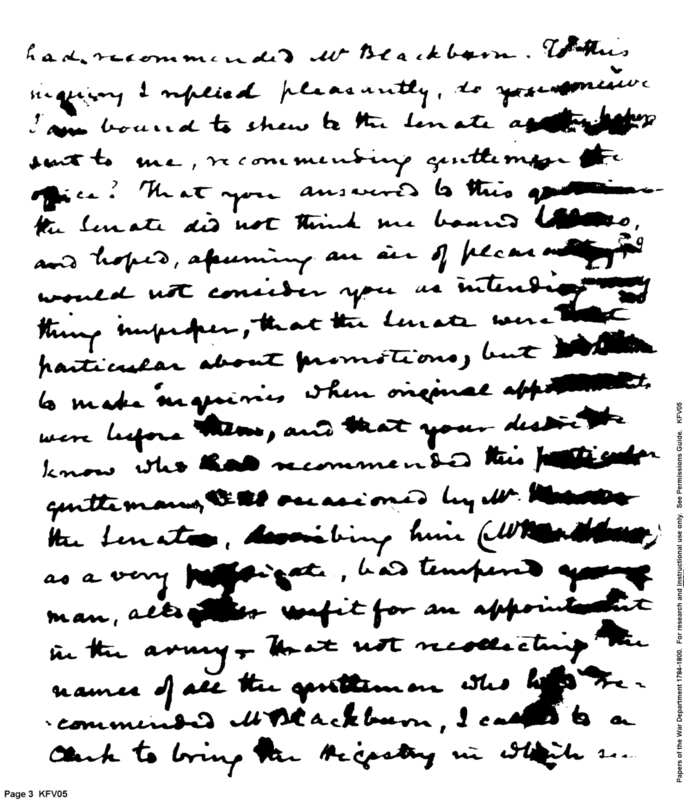 had recommended Mr Blackburn. To this
inquiry I replied pleasantly, do you conceive
I am bound to shew to the Senate all the papers
sent to me, recommending gentlemen
office? That you answered to this
the Senate did not think me bound to do so,
and hoped, assuming an air of pleasantry,
would not consider you as intending any
thing improper, that the Senate were not
particular about promotions, but
to make inquiries when original appointments
were before them, and that your desire to
know who had recommended this particular
gentleman, was occasioned by Mr.
the Senate, describing him (Mr Blackburn)
as a very profligate, bad tempered young
man, altogether unfit for an appointment
in the army. That not recollecting the
names of all the gentlemen who had re-
commended Mr Blackburn, I called to a
Clerk to bring the Registry in which
Page 3 KFV05
Papers of the War Department 1784-1800. For research and instructional use only. See Permissions Guide. KFV05